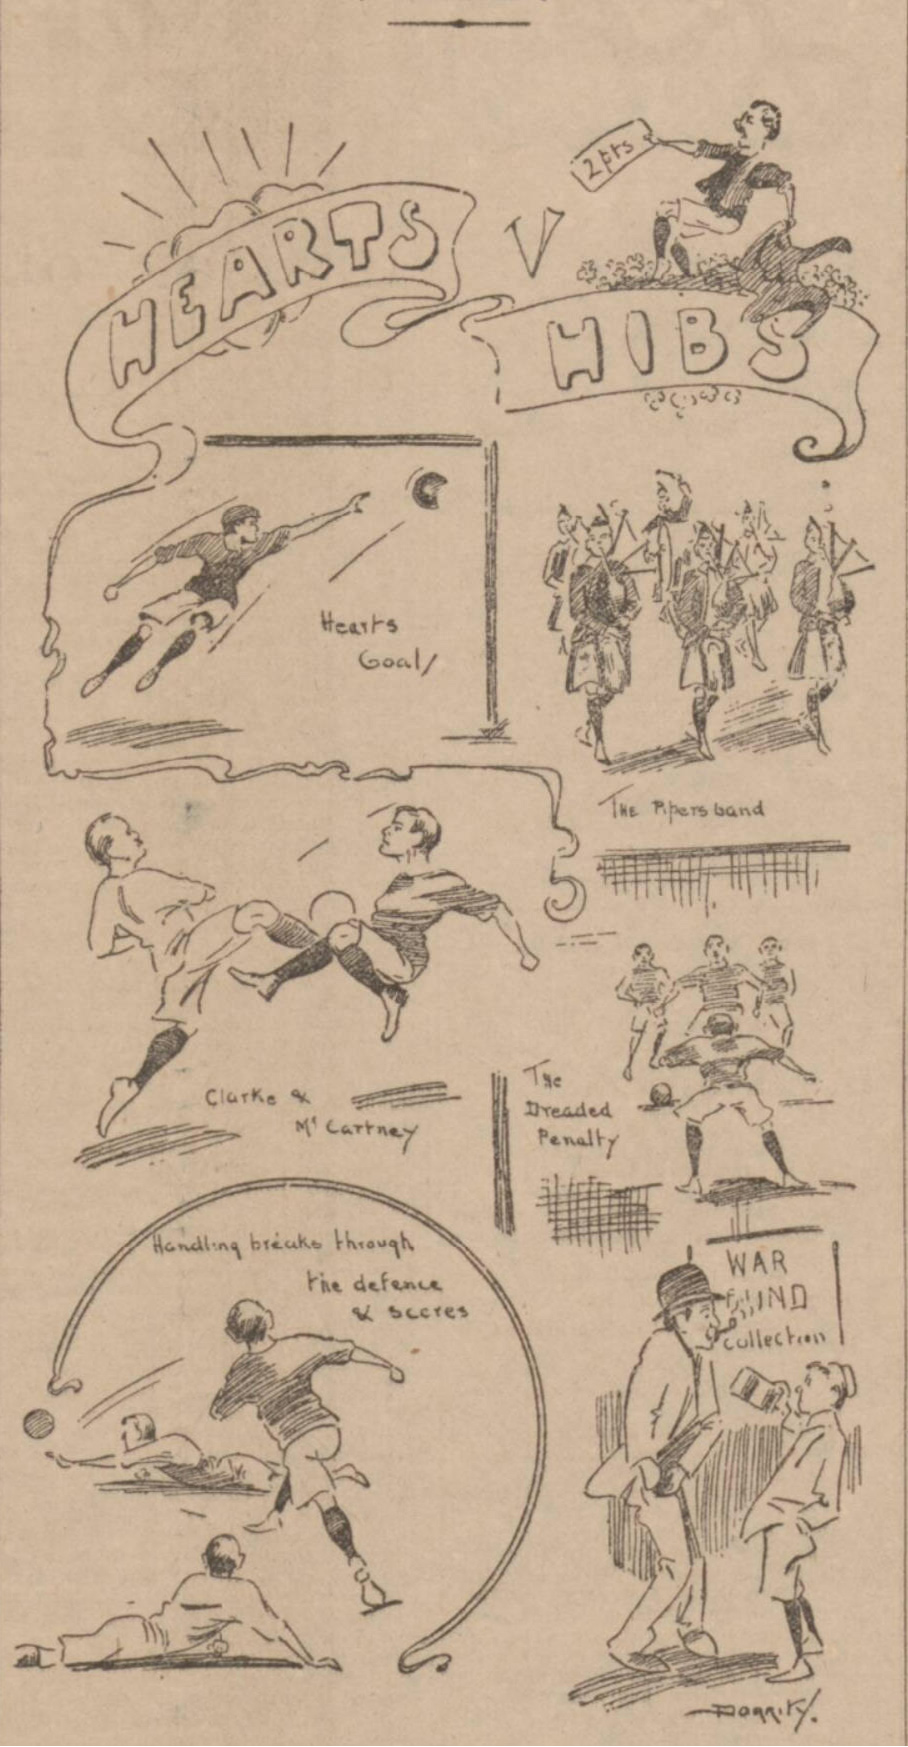 HEARTS
V
2pts
HIBS
Hearts
Goal
THE Pipers band
Clarke &
Mc Cartney
The
Dreaded
Penalty
Handling breaks through
the defence
& scores
WAR
FUND
Collection
DORRITY.